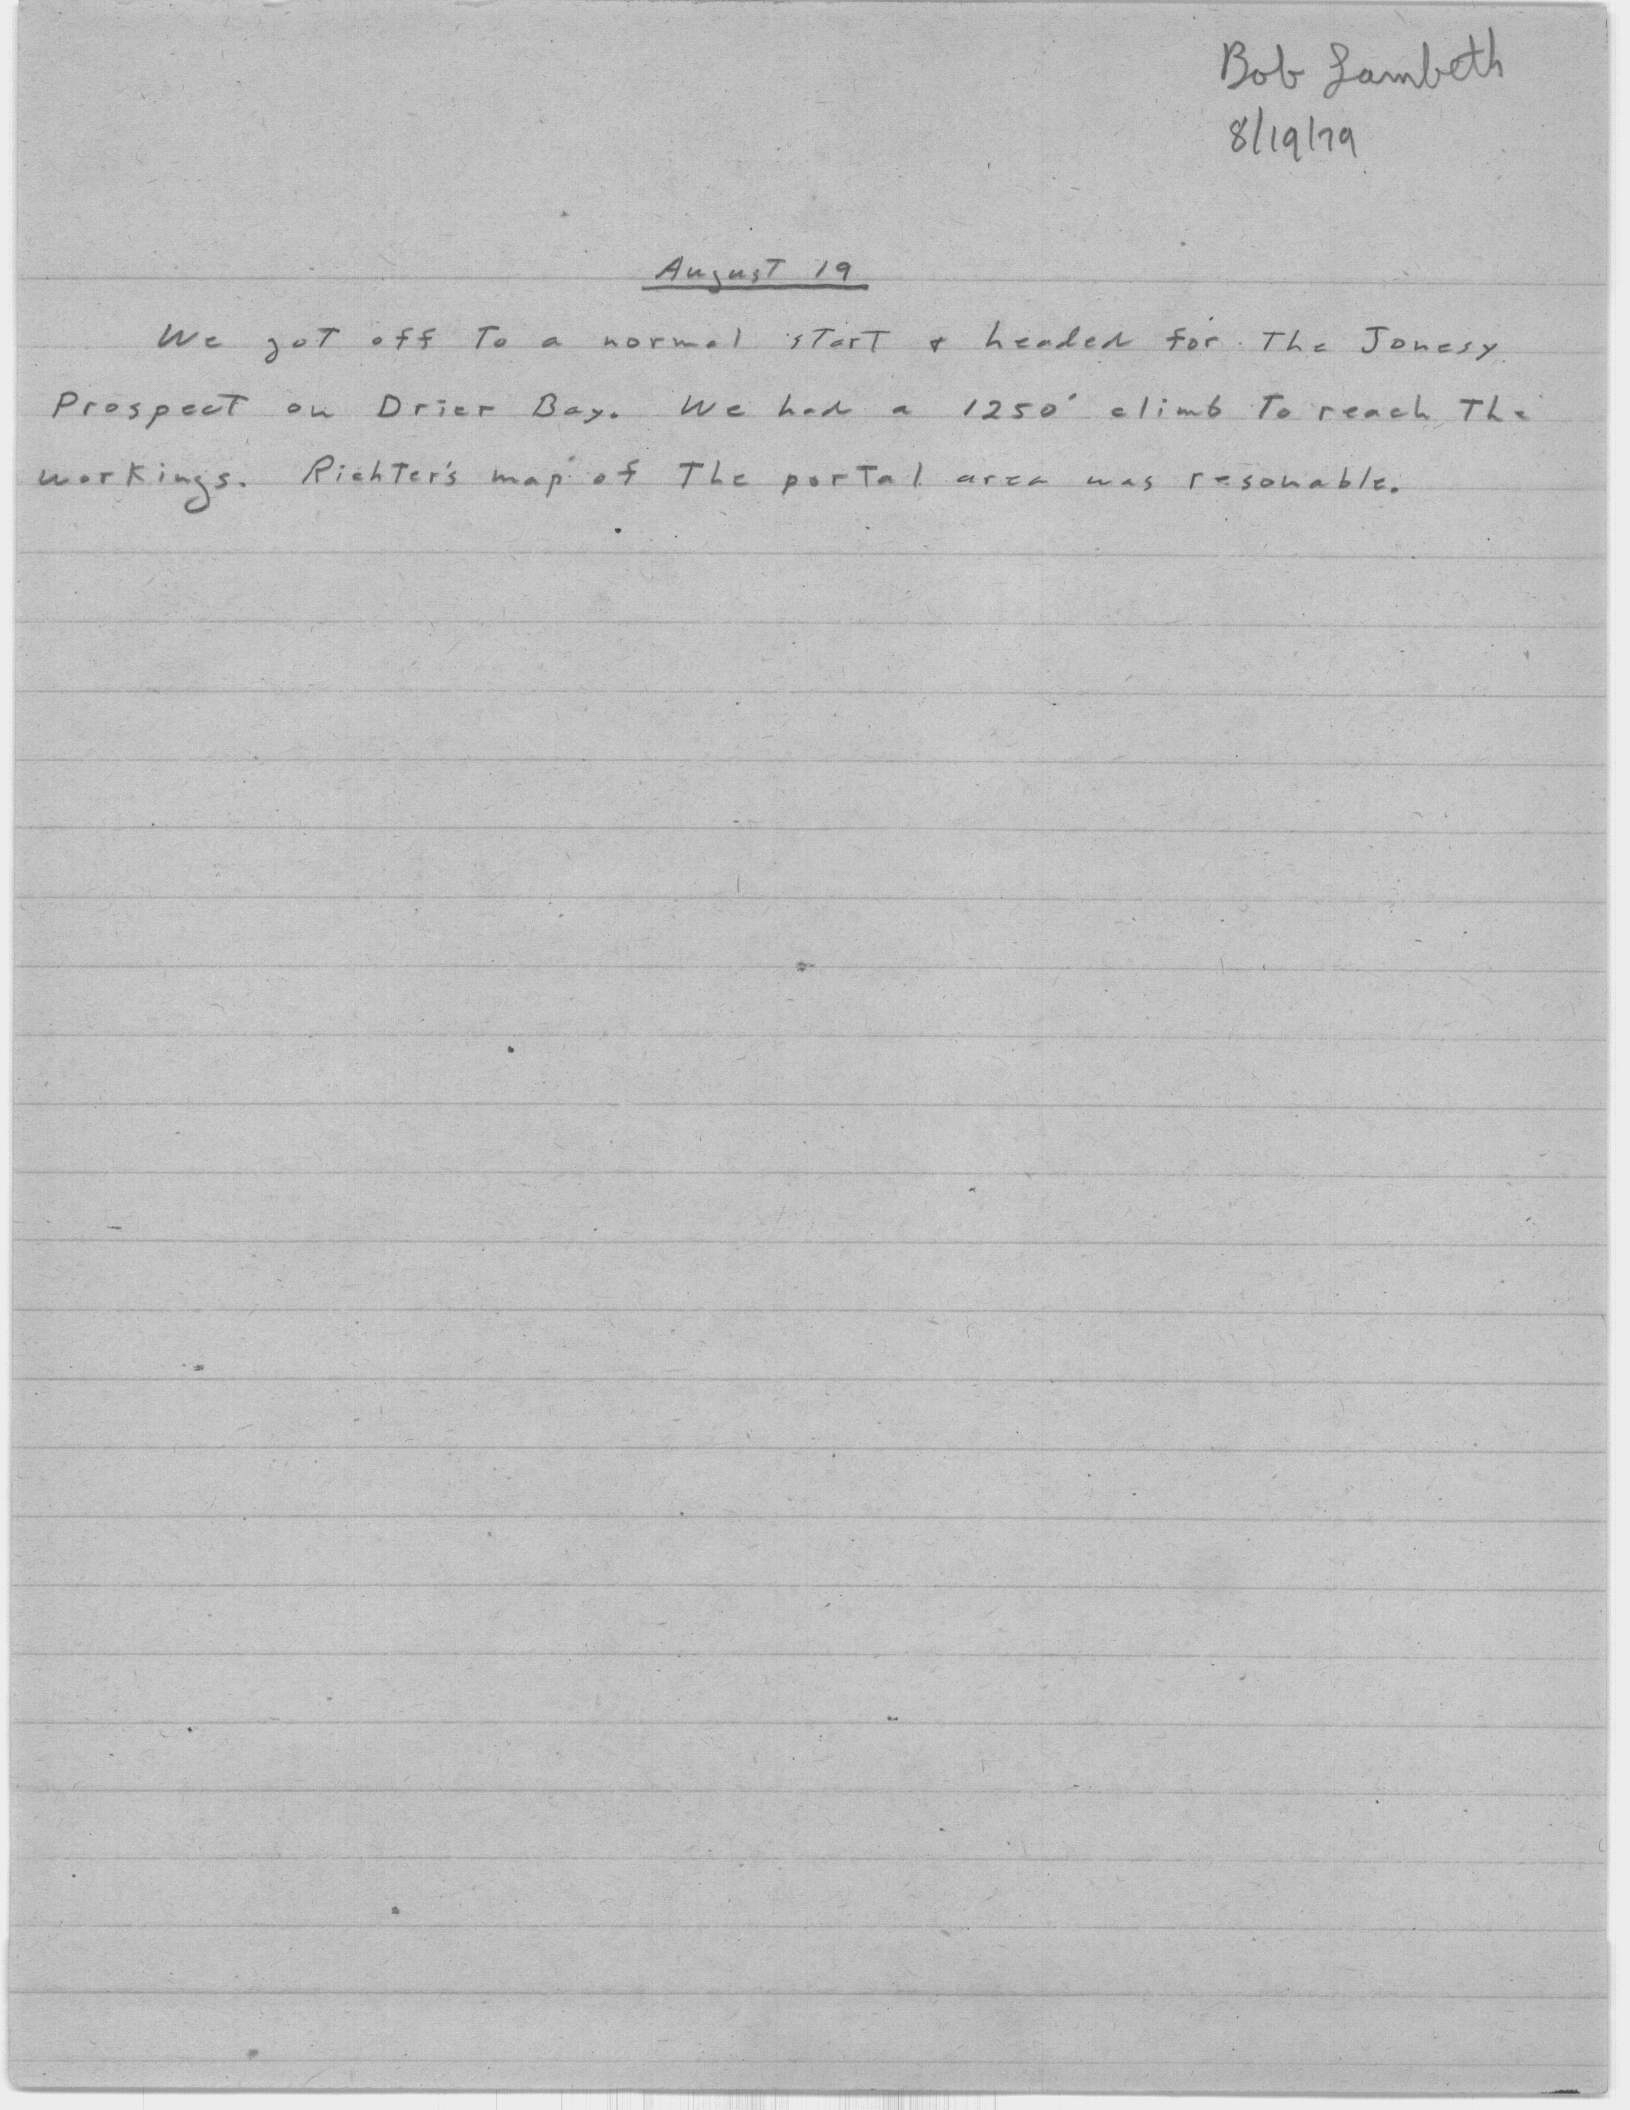 Bob Lambeth
8/19/79
August 19
We got off to a normal start & headed for the Jonesy
Prospect on Drier Bay. We had a 1250' climb to reach the
workings. Richter's map of the portal area was resonable.